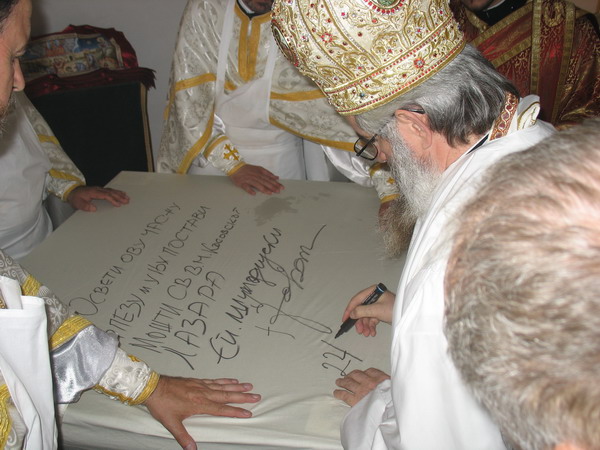 ОСВЕТИ ОВУ ЧАСНУ
ПЕЗУ И У ЊУ ПОСТАВИ
МОШТИ СВ ВМ Косовског
ЛАЗАРА
Еп. шумадијски
+ Јован
24